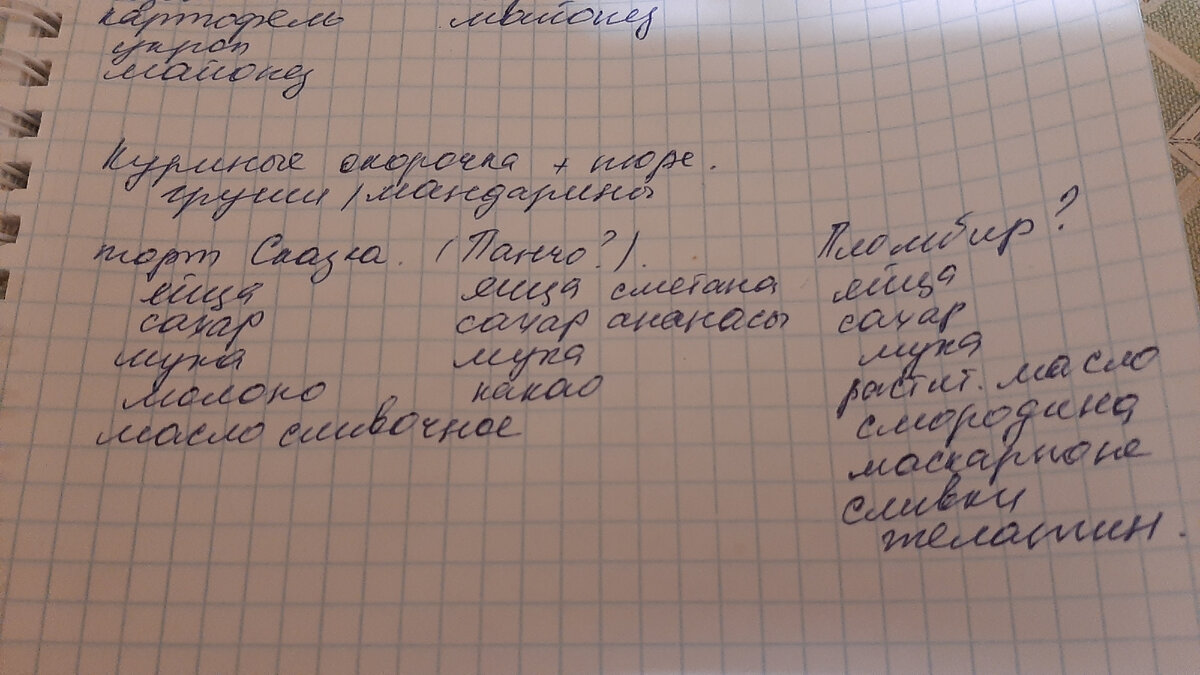 картофель майонез
укроп
майонез
Куриные окорочка + пюре.
груши / мандарины
торт Сказка. (Панчо?).
яйца
сахар
мука
молоко
масло сливочное
яйца сметана
сахар ананасы
мука
какао
Пломбир?
яйца
сахар
мука
растит. масло
смородина
маскарпоне
сливки
желатин.